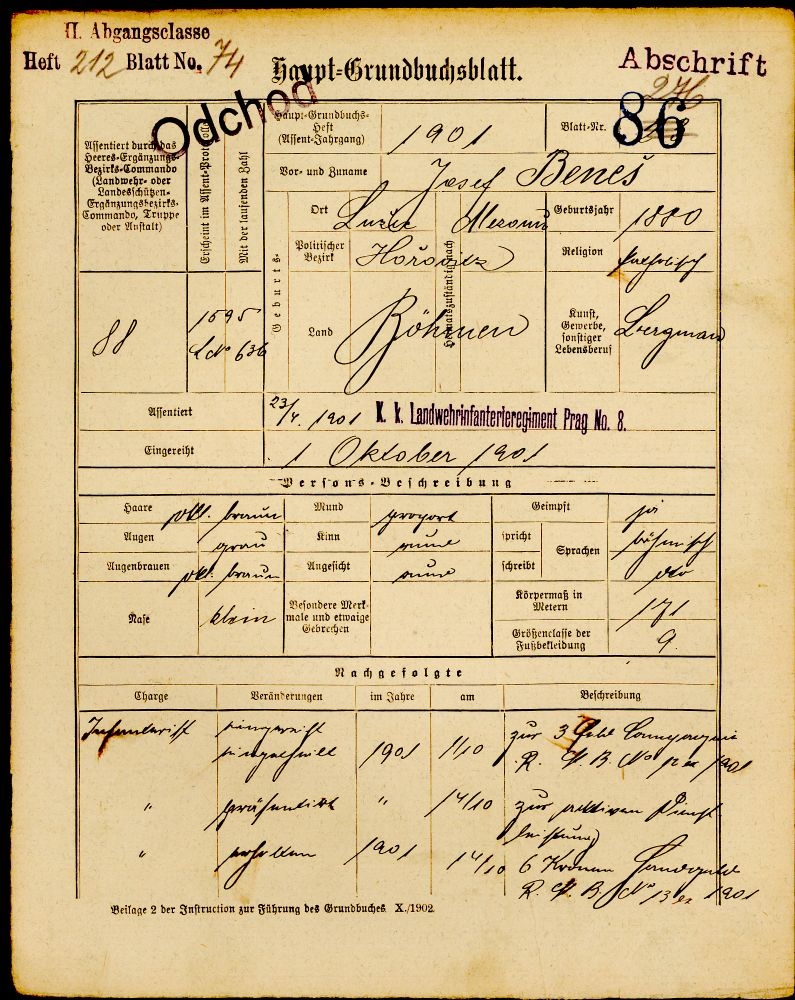 II. Abgangsclasse
Heft 212 Blatt No. 74
Haupt-Grundbuchsblatt.
Abschrift
Odchod
86
Assentiert durch das
Heeres-Ergänzungs-
Bezirks-Commando
(Landwehr- oder
Landesschützen-
Ergänzungsbezirks-
Commando, Truppe
oder Anstalt)
Erscheint im Assent-Protokolle
Mit der laufenden Zahl
Haupt-Grundbuchs-
Heft
(Assent-Jahrgang)
1901
Blatt-Nr.
Vor- und Zuname
Josef Beneš
Geburts-
Ort
Heimatszuständig nach
Geburtsjahr
1880
Politischer
Bezirk
Hořowitz
Religion
katholisch
Land
Böhmen
Kunst,
Gewerbe,
sonstiger
Lebensberuf
Bergman
88
1595
636
Assentiert
23/4. 1901 K. k. Landwehrinfanterieregiment Prag No. 8.
Eingereiht
1 Oktober 1901
Persons-Beschreibung
Haare
dkl. braun
Mund
proport
Geimpft
ja
Augen
grau
Kinn
rund
spricht
schreibt
Sprachen
böhmisch
dto
Augenbrauen
dkl. braun
Angesicht
rund
Nase
klein
Besondere Merk-
male und etwaige
Gebrechen
Körpermaß in
Metern
171
Größenclasse der
Fußbekleidung
9.
Nachgefolgte
Charge Veränderungen im Jahre am Beschreibung
Infanterist eingereiht
eingetheilt 1901 1/10 zur 3 Feld Compagnie
1901
" präsentirt " 14/10 zur aktiven Dienst
leistung
" erhalten 1901 14/10 6 Kronen Handgeld
1901
Beilage 2 der Instruction zur Führung des Grundbuches. X./1902.